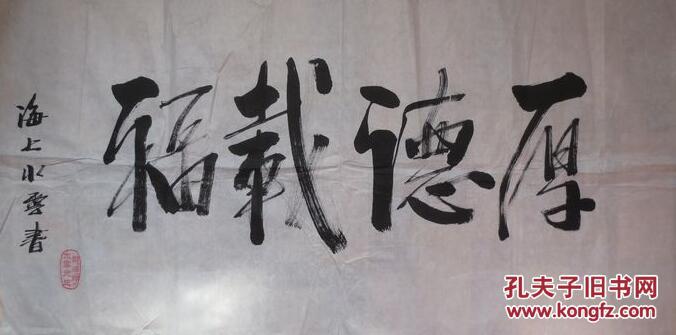 厚德載福
海上水雲書
孔夫子旧书网
www.kongfz.com